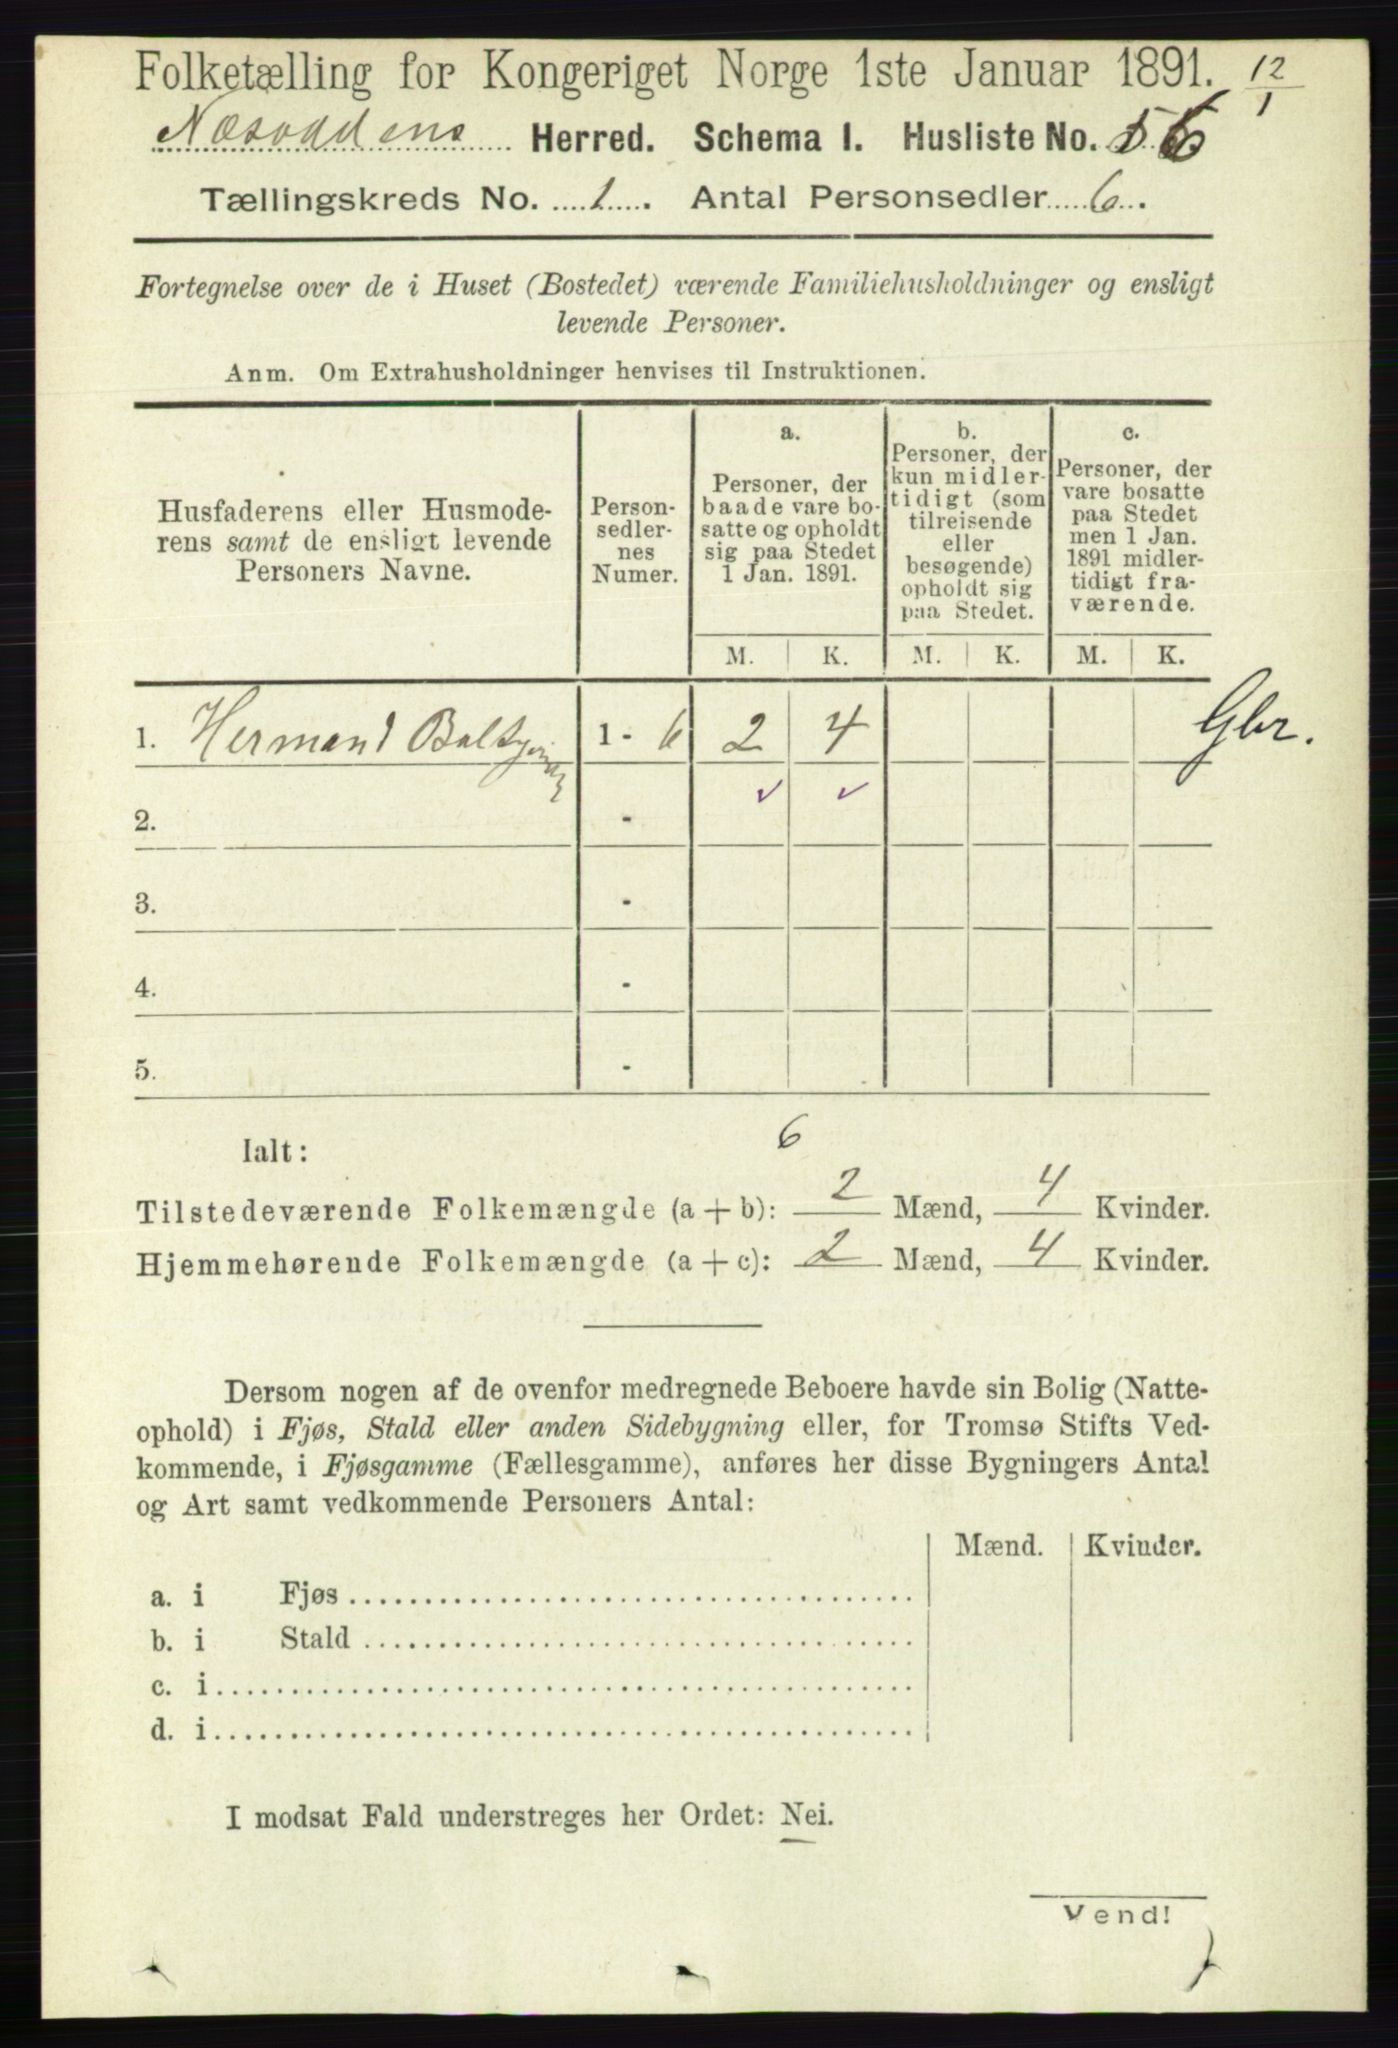 Folketælling for Kongeriget Norge 1ste Januar 1891. 12/1
Næsoddens Herred. Schema I. Husliste No. 56
Tællingskreds No. 1. Antal Personsedler 6.
Fortegnelse over de i Huset (Bostedet) værende Familiehusholdninger og ensligt
levende Personer.
Anm. Om Extrahusholdninger henvises til Instruktionen.
Husfaderens eller Husmode-
rens samt de ensligt levende
Personers Navne.
Person-
sedler-
nes
Numer.
a.
Personer, der
baade vare bo-
satte og opholdt
sig paa Stedet
1 Jan. 1891.
b.
Personer, der
kun midler-
tidigt (som
tilreisende
eller
besøgende)
opholdt sig
paa Stedet.
c.
Personer, der
vare bosatte
paa Stedet
men 1 Jan.
1891 midler-
tidigt fra-
værende.
M. K. M. K. M. K.
1. Hermand 1 - 6 2 4 Gbr.
✓ ✓
2. -
3. -
4. -
5. -
6
Ialt:
Tilstedeværende Folkemængde (a + b): 2 Mænd, 4 Kvinder.
Hjemmehørende Folkemængde (a + c): 2 Mænd, 4 Kvinder.
Dersom nogen af de ovenfor medregnede Beboere havde sin Bolig (Natte-
ophold) i Fjøs, Stald eller anden Sidebygning eller, for Tromsø Stifts Ved-
kommende, i Fjøsgamme (Fællesgamme), anføres her disse Bygningers Antal
og Art samt vedkommende Personers Antal:
Mænd. Kvinder.
a. i Fjøs
b. i Stald
c. i
d. i
I modsat Fald understreges her Ordet: Nei.
Vend!